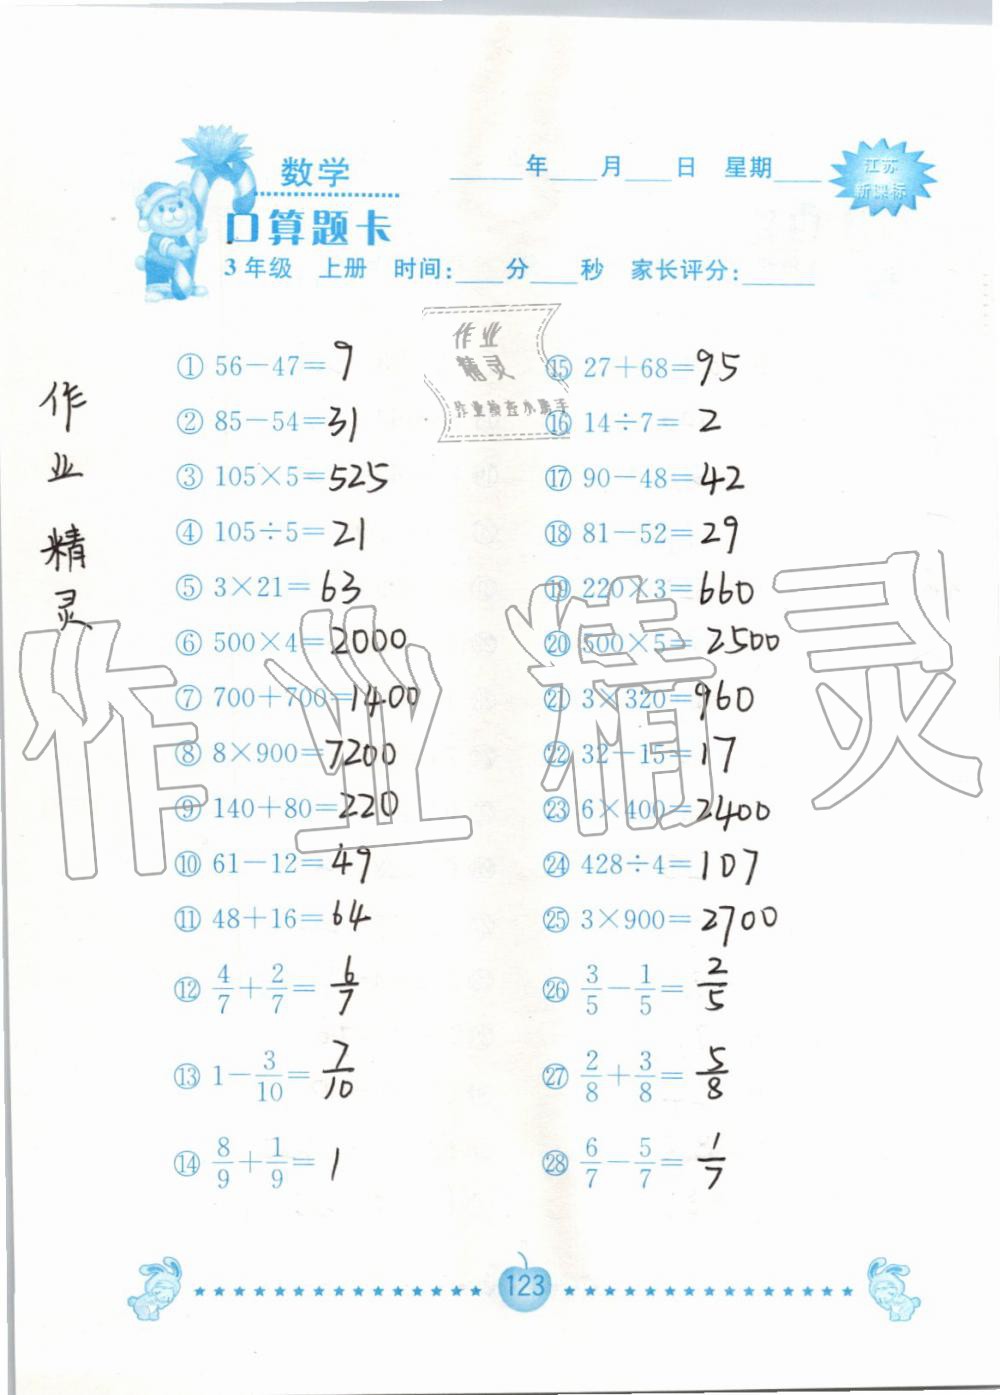 数学
____年____月____日 星期____
江苏
新课标
口算题卡
3年级 上册 时间:____分____秒 家长评分:____
作业
精灵
作业精灵
① 56－47=9
② 85－54=31
③ 105×5=525
④ 105÷5=21
⑤ 3×21=63
⑥ 500×4=2000
⑦ 700+700=1400
⑧ 8×900=7200
⑨ 140+80=220
⑩ 61－12=49
⑪ 48+16=64
⑫ 4/7+2/7=6/7
⑬ 1－3/10=7/10
⑭ 8/9+1/9=1
⑮ 27+68=95
⑯ 14÷7=2
⑰ 90－48=42
⑱ 81－52=29
⑲ 220×3=660
⑳ 500×5=2500
㉑ 3×320=960
㉒ 32－15=17
㉓ 6×400=2400
㉔ 428÷4=107
㉕ 3×900=2700
㉖ 3/5－1/5=2/5
㉗ 2/8+3/8=5/8
㉘ 6/7－5/7=1/7
作业精灵
123